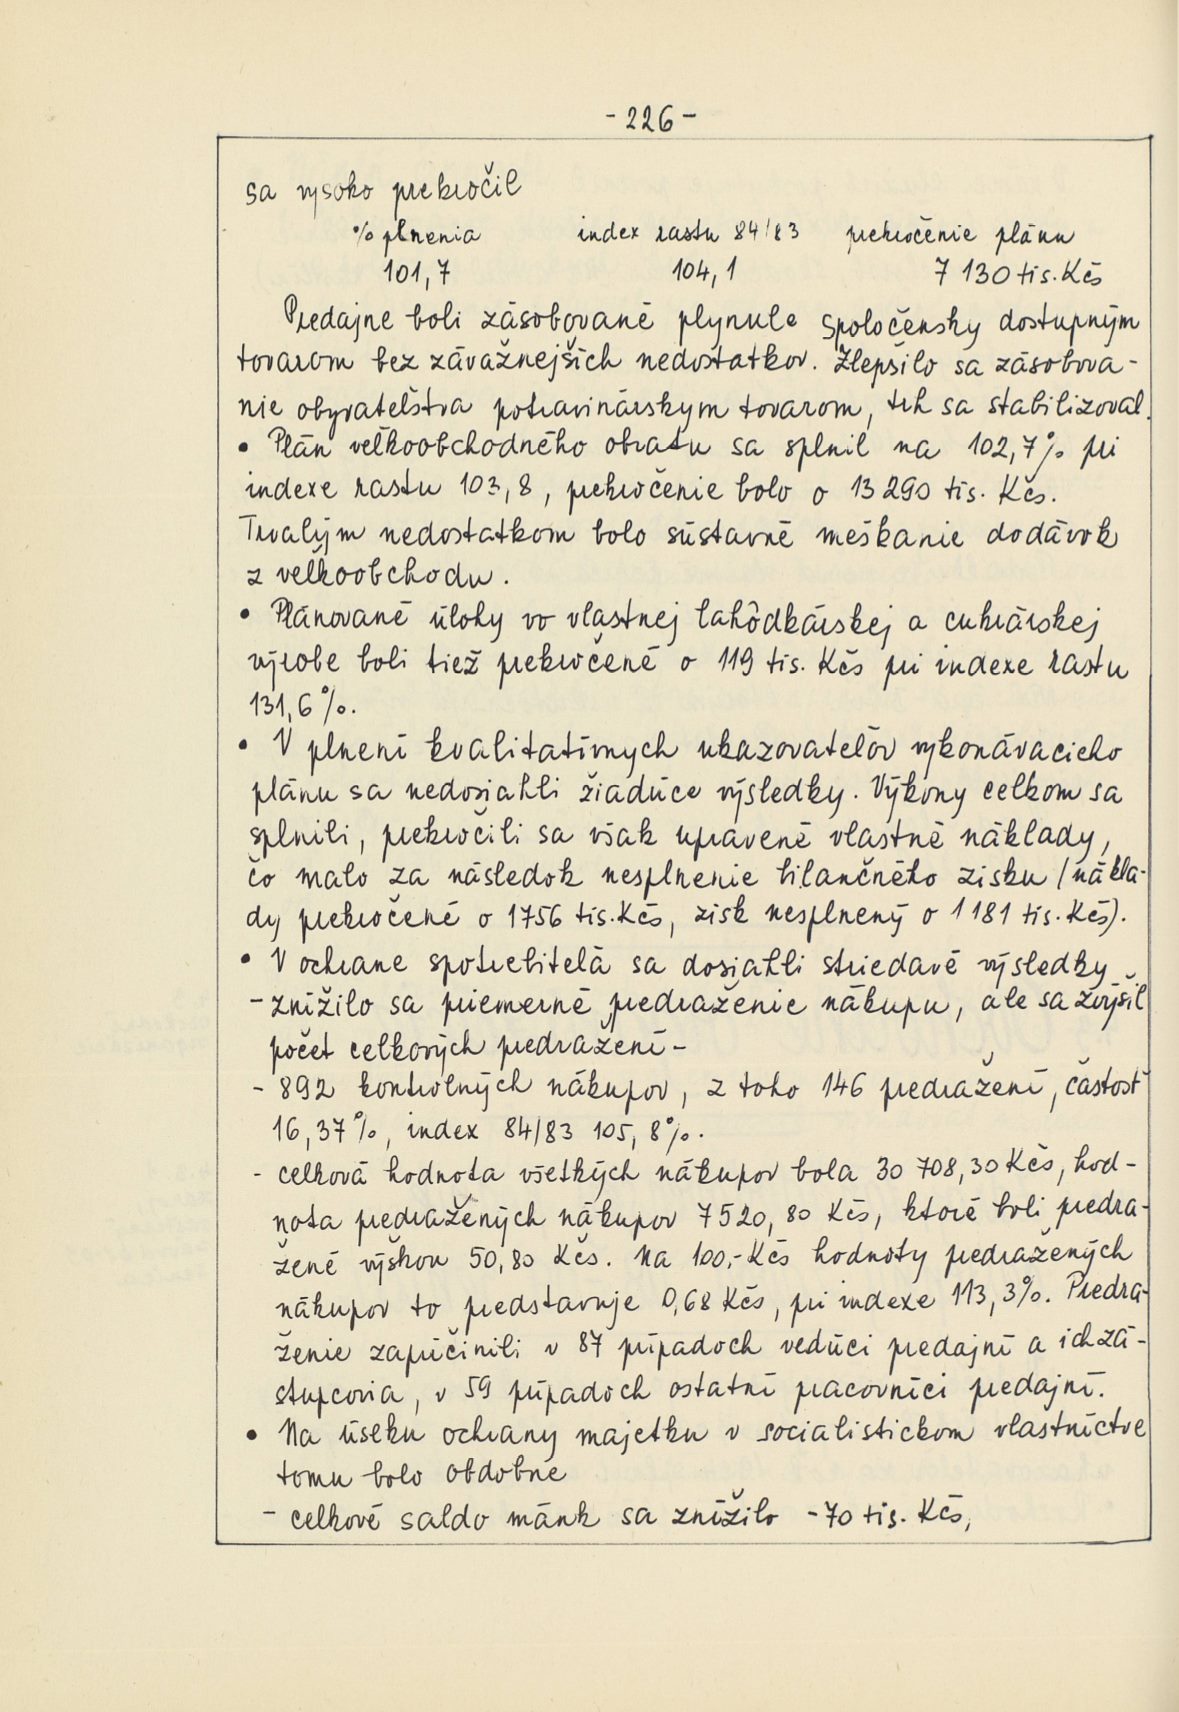 - 226 -
sa vysoko prekročil
% plnenia index rastu 84/83 prekročenie plánu
101,7 104,1 7 130 tis. Kčs
Predajne boli zásobované plynule spoločensky dostupným
tovarom bez závažnejších nedostatkov. Zlepšilo sa zásobova-
nie obyvateľstva potravinárskym tovarom, trh sa stabilizoval.
• Plán veľkoobchodného obratu sa splnil na 102,7% pri
indexe rastu 103,8, prekročenie bolo o 13 290 tis. Kčs.
Trvalým nedostatkom bolo sústavné meškanie dodávok
z veľkoobchodu.
• Plánované úlohy vo vlastnej lahôdkárskej a cukrárskej
výrobe boli tiež prekročené o 119 tis. Kčs pri indexe rastu
131,6%.
• V plnení kvalitatívnych ukazovateľov vykonávacieho
plánu sa nedosiahli žiadúce výsledky. Výkony celkom sa
splnili, prekročili sa však upravené vlastné náklady,
čo malo za následok nesplnenie bilančného zisku /nákla-
dy prekročené o 1756 tis. Kčs, zisk nesplnený o 1 181 tis. Kčs).
• V ochrane spotrebiteľa sa dosiahli striedavé výsledky
- znížilo sa priemerné predraženie nákupu, ale sa zvýšil
počet celkových predražení -
- 892 kontrolných nákupov, z toho 146 predražení, častosť
16,37%, index 84/83 105,8%.
- celková hodnota všetkých nákupov bola 30 708,30 Kčs, hod-
nota predražených nákupov 7520,80 Kčs, ktoré boli predra-
žené výškou 50,80 Kčs. Na 100,- Kčs hodnoty predražených
nákupov to predstavuje 0,68 Kčs, pri indexe 113,3%. Predra-
ženie zapríčinili v 87 prípadoch vedúci predajní a ich zá-
stupcovia, v 59 prípadoch ostatní pracovníci predajní.
• Na úseku ochrany majetku v socialistickom vlastníctve
tomu bolo obdobne
- celkové saldo mánk sa znížilo -70 tis. Kčs,